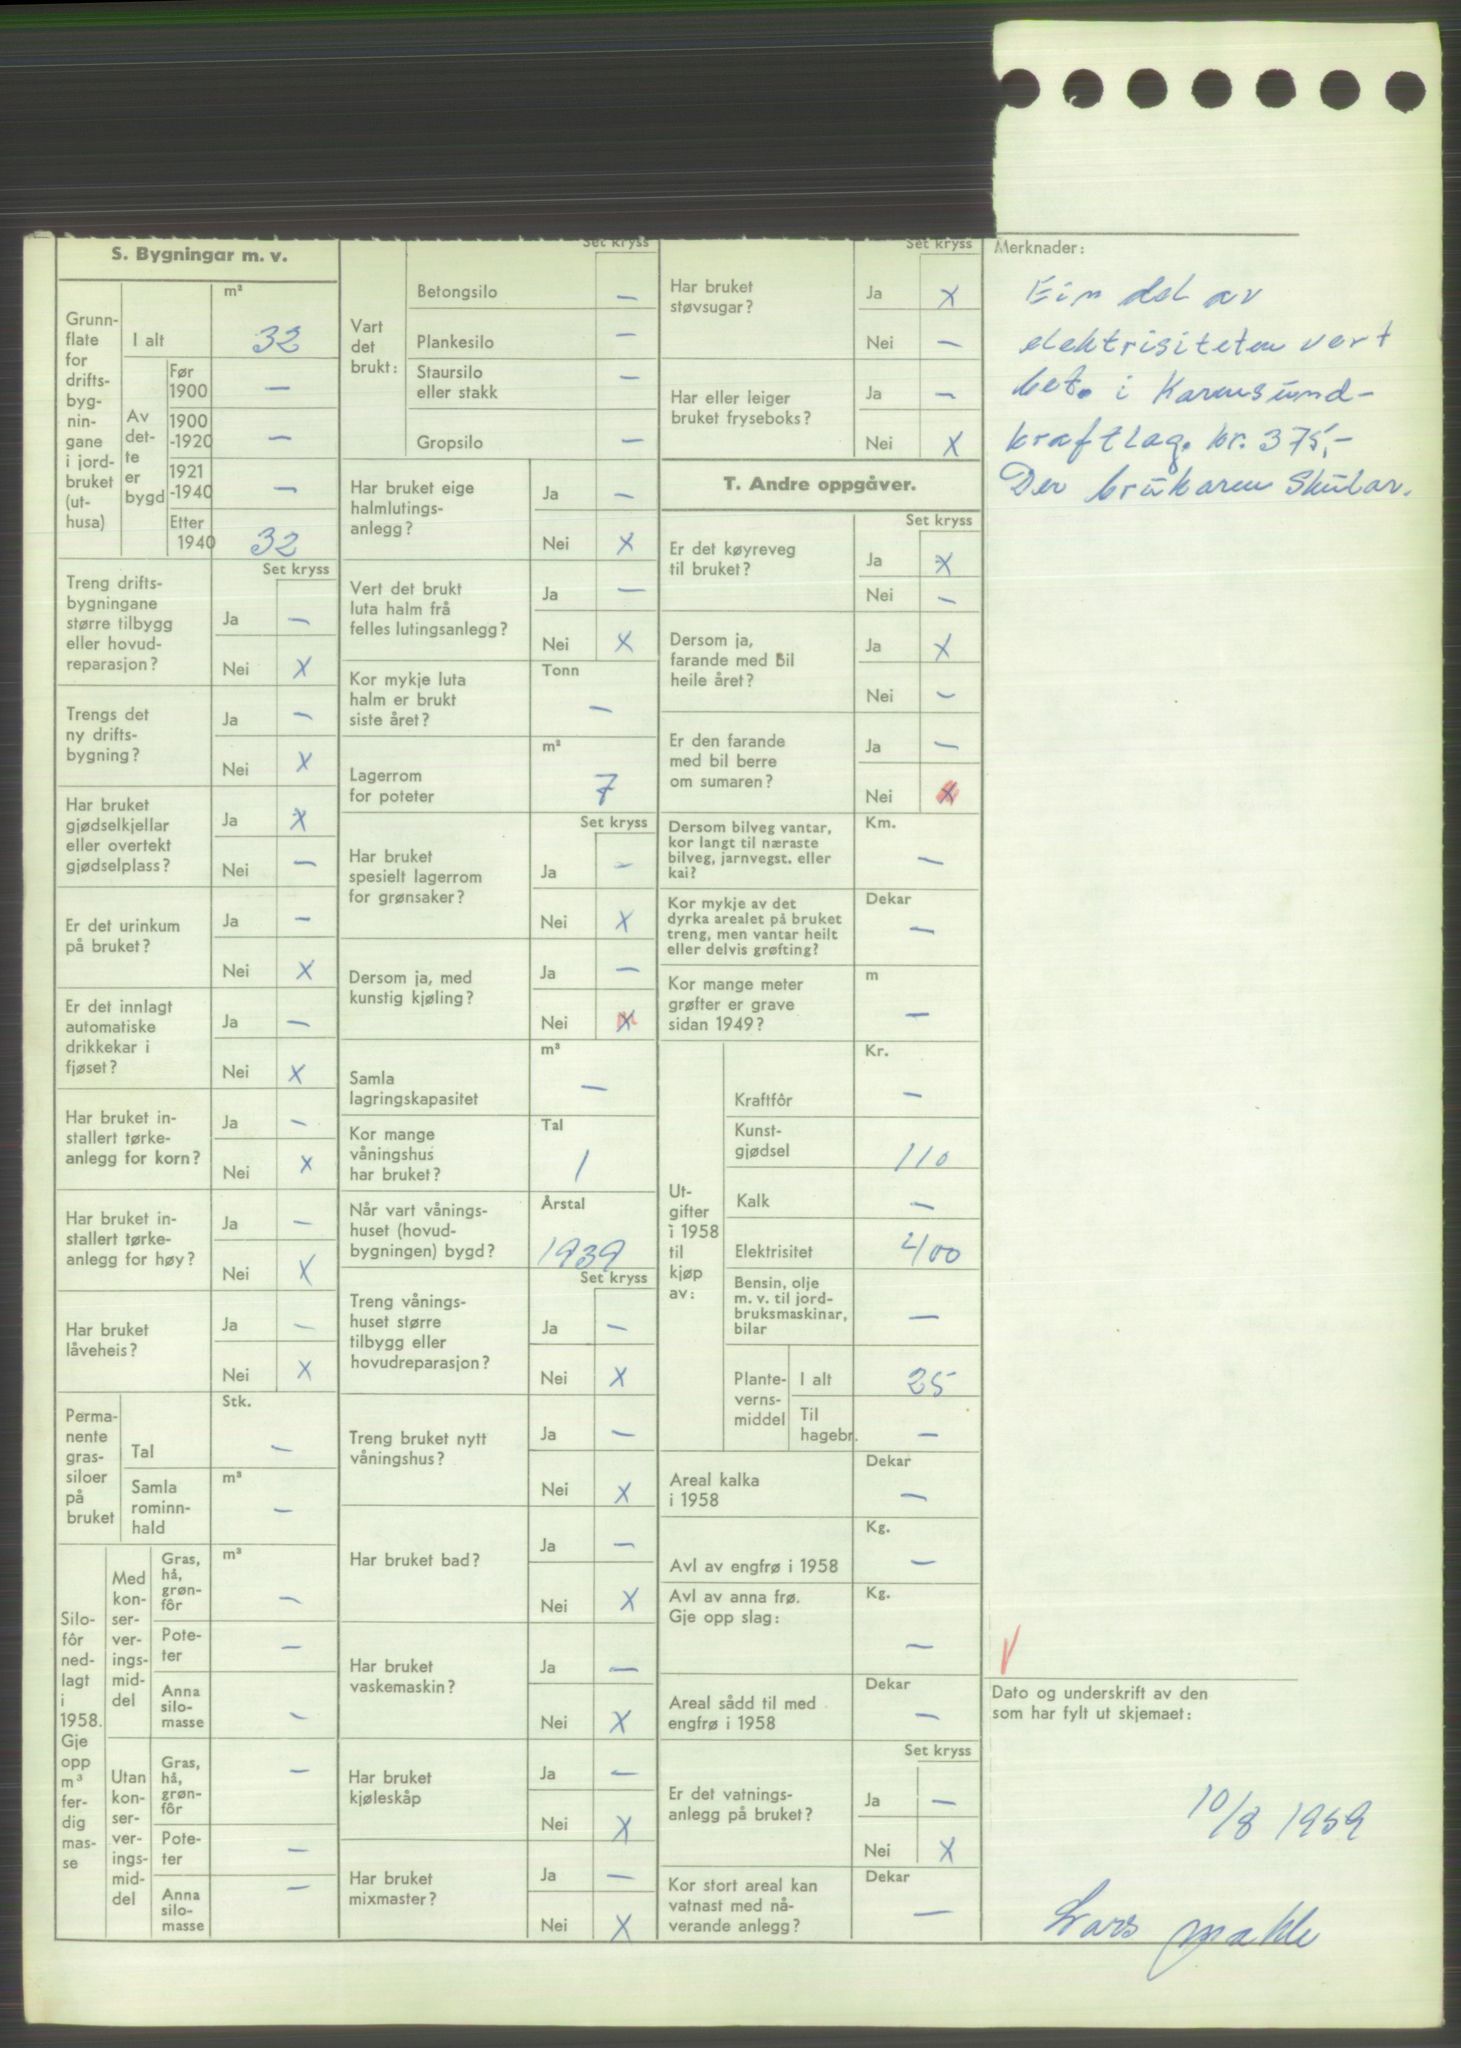 S. Bygningar m. v.
Grunn-
flate
for
drifts-
byg-
nin-
gane
i jord-
bruket
(ut-
husa)
m²
I alt 32
Av
det-
te
er
bygd
Før
1900 —
1900
-1920 —
1921
-1940 —
Etter
1940 32
Set kryss
Treng drifts-
bygningane
større tilbygg
eller hovud-
reparasjon?
Ja —
Nei X
Trengs det
ny drifts-
bygning?
Ja —
Nei X
Har bruket
gjødselkjellar
eller overtekt
gjødselplass?
Ja X
Nei —
Er det urinkum
på bruket?
Ja —
Nei X
Er det innlagt
automatiske
drikkekar i
fjøset?
Ja —
Nei X
Har bruket in-
stallert tørke-
anlegg for korn?
Ja —
Nei X
Har bruket in-
stallert tørke-
anlegg for høy?
Ja —
Nei X
Har bruket
låveheis?
Ja —
Nei X
Perma-
nente
gras-
siloer
på
bruket
Stk.
Tal —
m³
Samla
rominn-
hald —
Silo-
fôr
ned-
lagt
i
1958.
Gje
opp
m³
fer-
dig
mas-
se
Med
kon-
ser-
ver-
ings-
mid-
del
m³
Gras,
hå,
grøn-
fôr —
Pote-
ter —
Anna
silo-
masse —
Utan
kon-
ser-
ver-
ings-
mid-
del
Gras,
hå,
grøn-
fôr —
Pote-
ter —
Anna
silo-
masse —
Set kryss
Vart
det
brukt:
Betongsilo —
Plankesilo —
Staursilo
eller stakk —
Gropsilo —
Har bruket eige
halmlutings-
anlegg?
Ja —
Nei X
Vert det brukt
luta halm frå
felles lutingsanlegg?
Ja —
Nei X
Kor mykje luta
halm er brukt
siste året?
Tonn
—
Lagerrom
for poteter
m³
7
Set kryss
Har bruket
spesielt lagerrom
for grønsaker?
Ja —
Nei X
Dersom ja, med
kunstig kjøling?
Ja —
Nei X
Samla
lagringskapasitet
m³
—
Kor mange
våningshus
har bruket?
Tal
1
Når vart vånings-
huset (hovud-
bygningen) bygd?
Årstal
1939
Set kryss
Treng vånings-
huset større
tilbygg eller
hovudreparasjon?
Ja —
Nei X
Treng bruket nytt
våningshus?
Ja —
Nei X
Har bruket bad?
Ja —
Nei X
Har bruket
vaskemaskin?
Ja —
Nei X
Har bruket
kjøleskåp
Ja —
Nei X
Har bruket
mixmaster?
Ja —
Nei X
Set kryss
Har bruket
støvsugar?
Ja X
Nei —
Har eller leiger
bruket fryseboks?
Ja —
Nei X
T. Andre oppgåver.
Set kryss
Er det køyreveg
til bruket?
Ja X
Nei —
Dersom ja,
farande med bil
heile året?
Ja X
Nei —
Er den farande
med bil berre
om sumaren?
Ja —
Nei X
Dersom bilveg vantar,
kor langt til næraste
bilveg, jarnvegst. eller
kai?
Km.
—
Kor mykje av det
dyrka arealet på bruket
treng, men vantar heilt
eller delvis grøfting?
Dekar
—
Kor mange meter
grøfter er grave
sidan 1949?
m
—
Ut-
gifter
i 1958
til
kjøp
av:
Kr.
Kraftfôr —
Kunst-
gjødsel 110
Kalk —
Elektrisitet 400
Bensin, olje
m. v. til jord-
bruksmaskinar,
bilar —
Plante-
verns-
middel
I alt 25
Til
hagebr. —
Areal kalka
i 1958
Dekar
—
Avl av engfrø i 1958
Kg.
—
Avl av anna frø.
Gje opp slag:
Kg.
—
Areal sådd til med
engfrø i 1958
Dekar
—
Set kryss
Er det vatnings-
anlegg på bruket?
Ja —
Nei X
Kor stort areal kan
vatnast med nå-
verande anlegg?
Dekar
—
Merknader:
Ein del av
elektrisiteten vert
bet. i Karmsund-
kraftlag. kr. 375,-
Der brukaren Skular.
Dato og underskrift av den
som har fylt ut skjemaet:
10/8 1959
Lars Makle